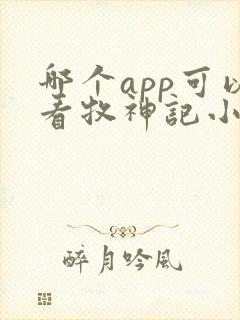 哪个app可以
看牧神记小
醉月吟风